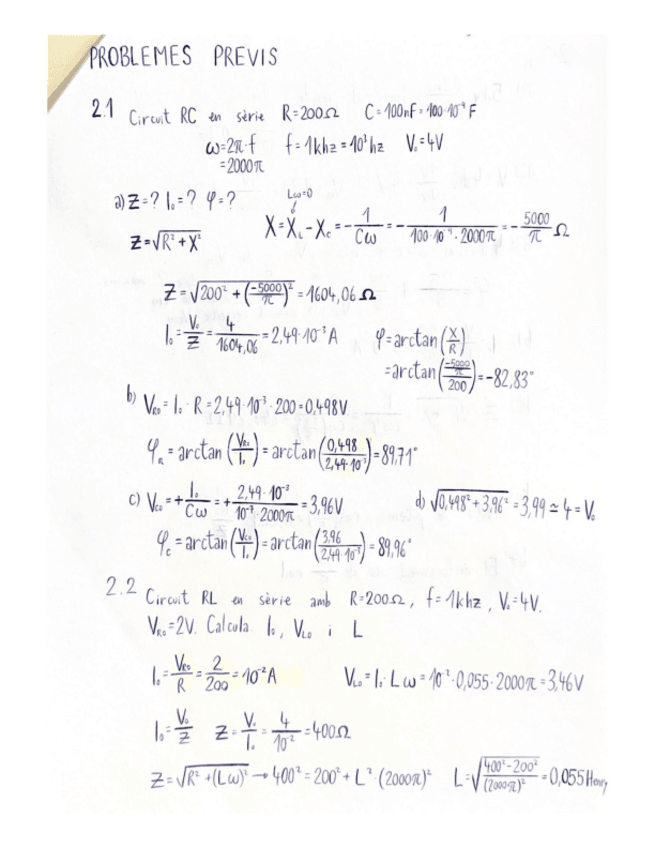 PROBLEMES PREVIS
2.1 Circuit RC en sèrie R=200Ω C=100nF=100·10⁻⁹F
ω=2π·f f=1khz=10³hz V₀=4V
=2000π
a) Z=? I₀=? φ=? Lω=0
Z=√(R²+X²) X=X_L-X_C=-1/(Cω)=-1/(100·10⁻⁹·2000π)=-5000/π Ω
Z=√(200²+(-5000/π)²)=1604,06Ω
I₀=V₀/Z=4/1604,06=2,49·10⁻³A φ=arctan(X/R)
=arctan((-5000/π)/200)=-82,83°
b) V_R₀=I₀·R=2,49·10⁻³·200=0,498V
φ_R=arctan(V_R₀/I₀)=arctan(0,498/2,49·10⁻³)=89,71°
c) V_C₀=+I₀/(Cω)=+2,49·10⁻³/(10⁻⁷·2000π)=3,96V d) √(0,498²+3,96²)=3,99≃4=V₀
φ_C=arctan(V_C₀/I₀)=arctan(3,96/2,49·10⁻³)=89,96°
2.2 Circuit RL en sèrie amb R=200Ω, f=1khz, V₀=4V.
V_R₀=2V. Calcula I₀, V_L₀ i L
I₀=V_R₀/R=2/200=10⁻²A V_L₀=I₀·Lω=10⁻²·0,055·2000π=3,46V
I₀=V₀/Z Z=V₀/I₀=4/10⁻²=400Ω
Z=√(R²+(Lω)²)→400²=200²+L²·(2000π)² L=√((400²-200²)/(2000π)²)=0,055Henry